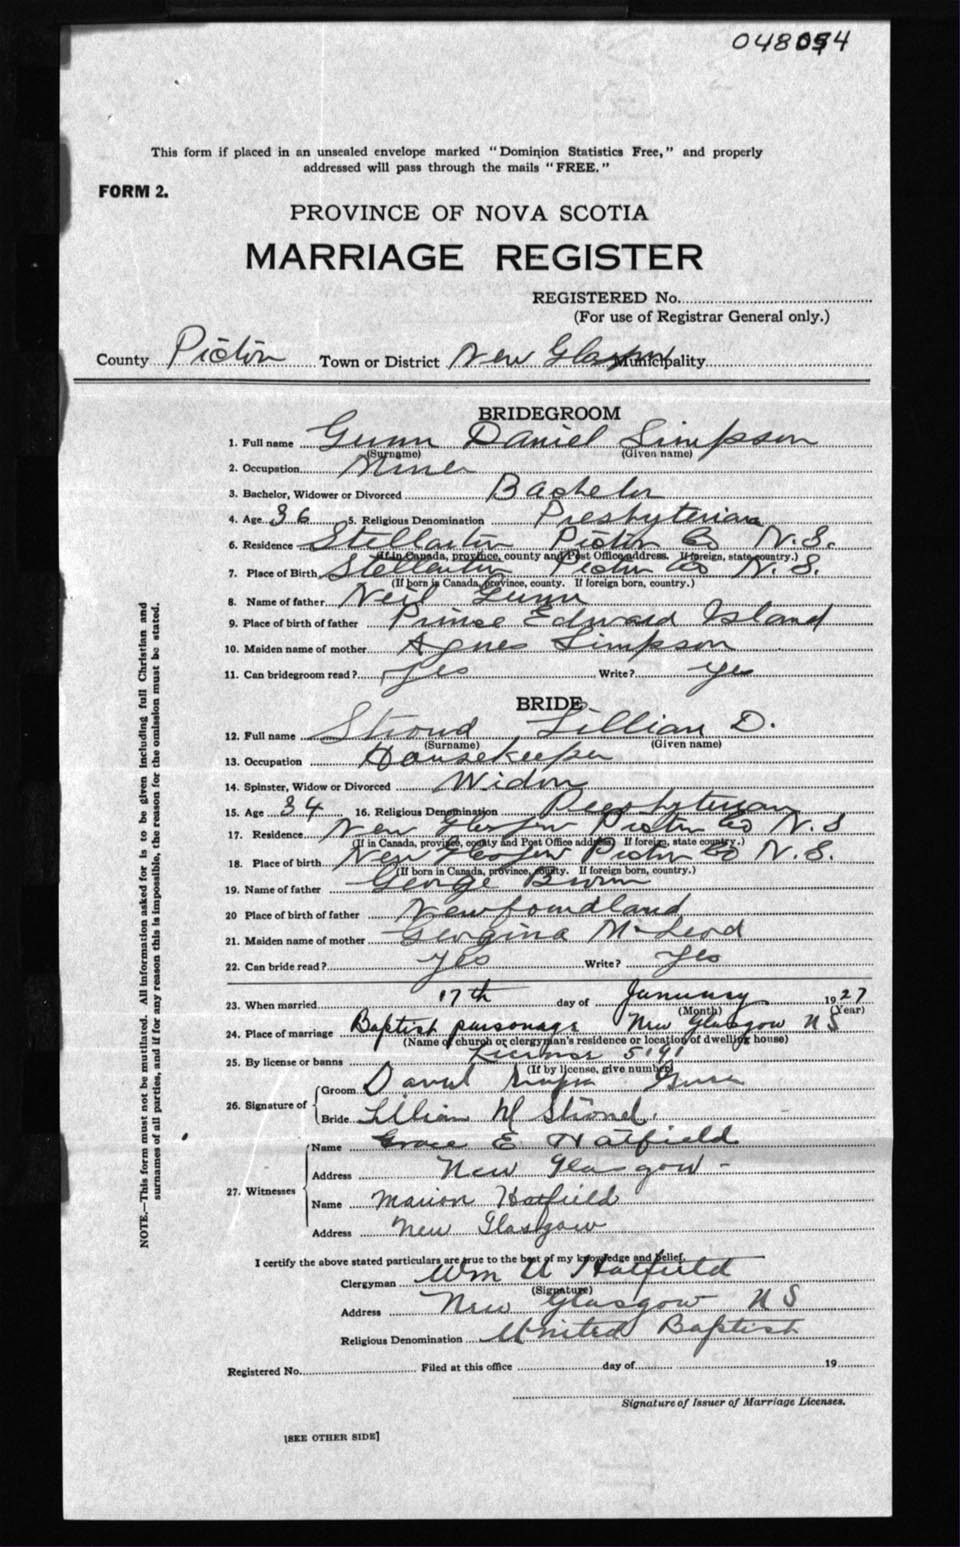 048094
This form if placed in an unsealed envelope marked "Dominion Statistics Free," and properly
addressed will pass through the mails "FREE."
FORM 2.
PROVINCE OF NOVA SCOTIA
MARRIAGE REGISTER
REGISTERED No.
(For use of Registrar General only.)
County Pictou Town or District New Glasgow Municipality
BRIDEGROOM
1. Full name Gunn Daniel Simpson
(Surname) (Given name)
2. Occupation Miner
3. Bachelor, Widower or Divorced Bachelor
4. Age 36 5. Religious Denomination Presbyterian
6. Residence Stellarton Pictou Co N.S.
(If in Canada, province, county and Post Office address. If foreign, state country.)
7. Place of Birth Stellarton Pictou Co N.S.
(If born in Canada, province, county. If foreign born, country.)
8. Name of father Neil Gunn
9. Place of birth of father Prince Edward Island
10. Maiden name of mother Agnes Simpson
11. Can bridegroom read? Yes Write? Yes
BRIDE
12. Full name Stroud Lillian D.
(Surname) (Given name)
13. Occupation Housekeeper
14. Spinster, Widow or Divorced Widow
15. Age 34 16. Religious Denomination Presbyterian
17. Residence New Glasgow Pictou Co N.S
(If in Canada, province, county and Post Office address) If foreign, state country.)
18. Place of birth New Glasgow Pictou Co N.S.
(If born in Canada, province, county. If foreign born, country.)
19. Name of father George Brown
20 Place of birth of father Newfoundland
21. Maiden name of mother Georgina McLeod
22. Can bride read? Yes Write? Yes
23. When married 17th day of January 1927
(Month) (Year)
24. Place of marriage Baptist parsonage New Glasgow N S
(Name of church or clergyman's residence or location of dwelling house)
25. By license or banns License 5191
(If by license, give number)
26. Signature of Groom Daniel Gunn
Bride Lillian M Stroud.
27. Witnesses Name Grace E Hatfield
Address New Glasgow -
Name Marion Hatfield
Address New Glasgow
I certify the above stated particulars are true to the best of my knowledge and belief.
Clergyman Wm A Hatfield
(Signature)
Address New Glasgow N S
Religious Denomination United Baptist
Registered No. Filed at this office day of 19
Signature of Issuer of Marriage Licenses.
[SEE OTHER SIDE]
NOTE.—This form must not be mutilated. All information asked for is to be given including full Christian and
surnames of all parties, and if for any reason this is impossible, the reason for the omission must be stated.